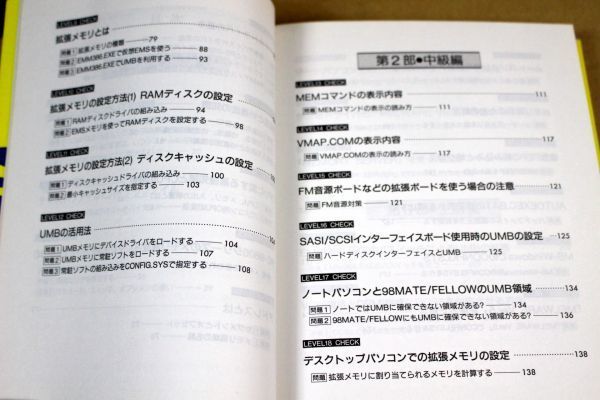 LEVEL9 CHECK
拡張メモリとは
問題1 拡張メモリの種類 79
問題2 EMM386.EXEで仮想EMSを使う 88
問題3 EMM386.EXEでUMBを利用する 93
LEVEL10 CHECK
拡張メモリの設定方法(1) RAMディスクの設定
問題1 RAMディスクドライバの組み込み 94
問題2 EMSメモリを使ってRAMディスクを設定する 98
LEVEL11 CHECK
拡張メモリの設定方法(2) ディスクキャッシュの設定
問題1 ディスクキャッシュドライバの組み込み 100
問題2 最小キャッシュサイズを指定する 103
LEVEL12 CHECK
UMBの活用法 104
問題1 UMBメモリにデバイスドライバをロードする 104
問題2 UMBメモリに常駐ソフトをロードする 107
問題3 常駐ソフトの組み込みをCONFIG.SYSで指定する 108
第2部●中級編
LEVEL13 CHECK
MEMコマンドの表示内容 111
問題 MEMコマンドの表示の読み方 111
LEVEL14 CHECK
VMAP.COMの表示内容 117
問題 VMAP.COMの表示の読み方 117
LEVEL15 CHECK
FM音源ボードなどの拡張ボードを使う場合の注意 121
問題 FM音源対策 121
LEVEL16 CHECK
SASI/SCSIインターフェイスボード使用時のUMBの設定 125
問題 ハードディスクインターフェイスとUMB 125
LEVEL17 CHECK
ノートパソコンと98MATE/FELLOWのUMB領域 134
問題1 ノートではUMBに確保できない領域がある? 134
問題2 98MATE/FELLOWにもUMBに確保できない領域がある? 136
LEVEL18 CHECK
デスクトップパソコンでの拡張メモリの設定 138
問題 拡張メモリに割り当てられるメモリを計算する 138